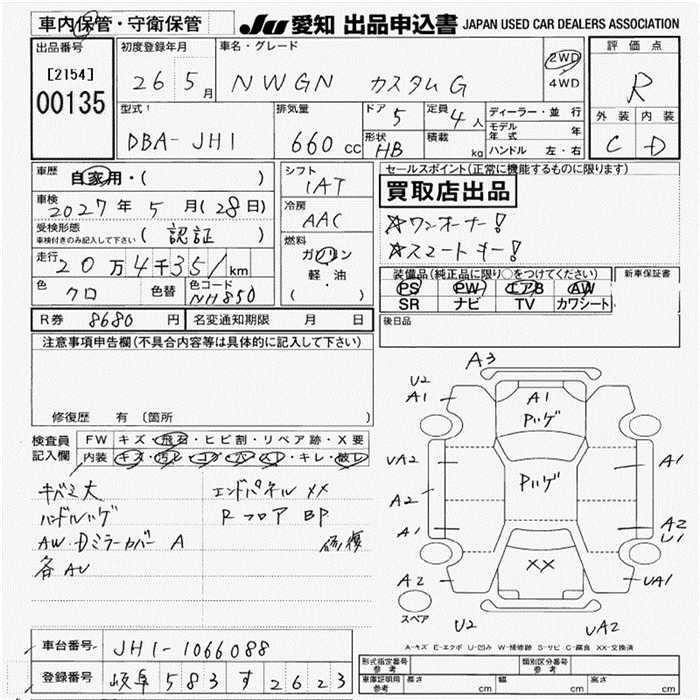 車内保管・守衛保管
JU 愛知 出品申込書 JAPAN USED CAR DEALERS ASSOCIATION
出品番号
[2154]
00135
初度登録年月
26 5月
車名・グレード
NWGN カスタムG
2WD
4WD
評価点
R
外装 内装
C D
型式
DBA-JH1
排気量
660 cc
ドア 5
定員 4人
形状 HB
積載 kg
ディーラー・並行
モデル年式 年
ハンドル 左・右
車歴 自家用・( )
車検 2027年 5月(28日)
受検形態
車検付きのみ記入して下さい ( 認証 )
走行 20万4千351km
色 クロ 色替 色コード NH850
シフト
IAT
冷房
AAC
燃料
ガソリン
軽・油
( ・ )
セールスポイント(正常に機能するものに限ります)
買取店出品
☆ワンオーナー!
☆スマートキー!
装備品(純正品に限り○をつけてください)
PS PW エアB AW
SR ナビ TV カワシート
新車保証書
後日品
R券 8680円 名変通知期限 月 日
注意事項申告欄(不具合内容等は具体的に記入して下さい)
修復歴 有 〔箇所
検査員記入欄
FW キズ・飛石・ヒビ割・リペア跡・X要
内装 キズ・汚レ・コゲ・ハゲ・スレ・キレ・破レ
キバミ大
ハンドルハゲ
AW・Dミラーカバー A
各AU
エンドパネル XX
Rフロア BP
修復
A3
U2
A1
A1
Pハゲ
UA2
A2
A1
A2
Pハゲ
A1
A2
U1
UA1
XX
スペア
U2
UA2
A-キズ E-エクボ U-凹み W-補修跡 S-サビ C-腐食 XX-交換済
車台番号 JH1-1066088
登録番号 岐阜 583 す 2623
形式指定番号 参考
類別区分番号 参考
車庫証明用 参考
長さ cm 幅 cm 高さ cm